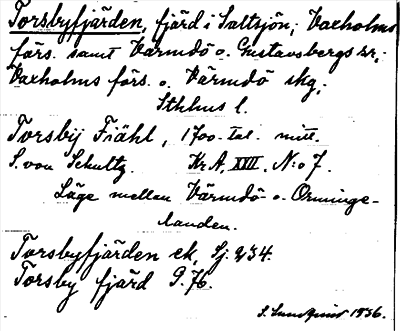 Torsbyfjärden, fjärd i Saltsjön; Vaxholms
förs. samt Värmdö o. Gustavsbergs sr;
Vaxholms förs. o. Värmdö skg;
Sthlms l.
Torsbij Fiähl, 1700-tal. mitt.
S. von Schultz. Kr. A, XXII, N:o 7.
Läge mellan Värmdö- o. Orminge-
landen.
Torsbyfjärden ek, Sj. 234.
Torsby fjärd G. 76.
S. Lundquist 1936.